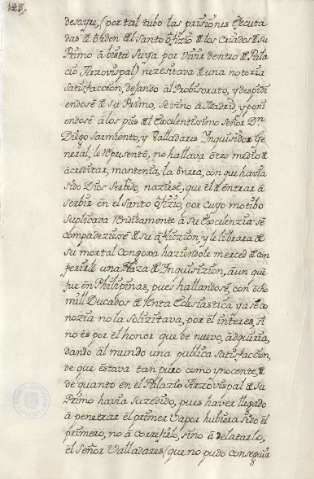 desayre, (por tal tubo las prisiones Executa
das de orden del Santo Ofizio de los Criados de su
Primo à vista suya por dentro de Pala
cio Arzovispal) nezesitava de una notoria
satisfaccion, dejando al Probisorato, y despidi
endose de su Primo, se vino à Madrid, y poni
endose à los pies del Excelentissimo Señor Dn
Diego Sarmiento, y Valladares Inquisidor Ge
neral, le representè, no hallava otro medio de
acreditar, mantenia, la honra, con que havia
sido Dios serbido, naziese, que el de entrar à
serbir en el Santo Ofizio, por cuyo motibo
suplicava rendidamente à su Excelenzia se
compadeziese de su aflizion, y le librara de
su mortal congoxa haziendole merced de con
ferirle una Plaza de Inquisizion, àun que
fue en Philipinas, pues hallandose, con ocho
mill Ducados de renta Eclesiastica ya se co
nozia no la solizitava, por el interes, si
no es por el honor que de nuevo, adquiria,
dando al mundo una publica satisfaccion,
de que estava tan puro como ynocente, de
de quanto en el Palazio Arzovispal de su
Primo havia suzedido, pues haver llegado
à penetrar el primer vapor hubiera sido el
primero, no à corregirlo, sino à delatarlo,
el Señor Valladares (que no pudo conseguir